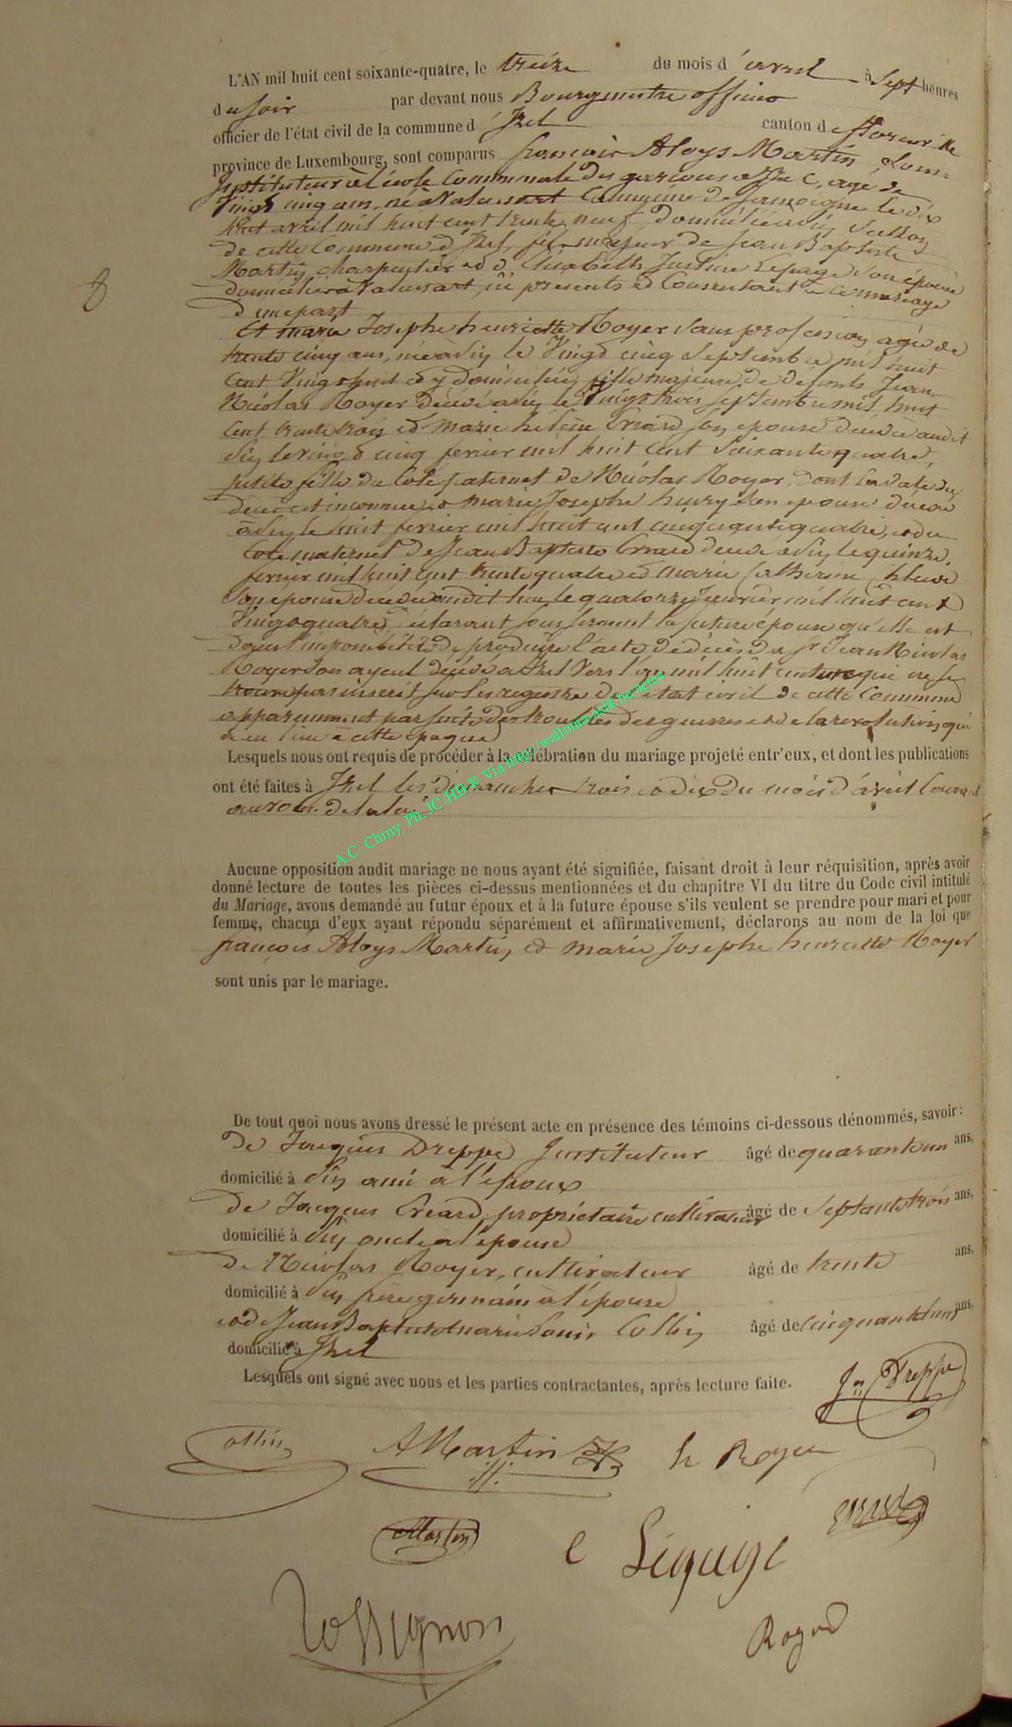 L'AN mil huit cent soixante-quatre, le treize du mois d'avril à sept heures
du soir par devant nous Bourgmestre officier
officier de l'état civil de la commune d'Izel canton de florenville
province de Luxembourg, sont comparus françois Aloys Martin,
Instituteur à l'école Communale des garçons agé de
Vingt cinq ans, né à Valansart Commune de Jamoigne le dix
huit avril mil huit cent trente neuf domicilié à Pin Section
de cette Commune d'Izel, fils majeur de Jean Baptiste
Martin charpentier et d'Elisabeth Justine Lepage son épouse
domiciliés à Valansart, ici présents et Consentant à ce mariage
d'une part
Et marie Josephe henriette Royer sans profession agée de
trente cinq ans, née à Pin le Vingt cinq Septembre mil huit
cent Vingt huit et y domiciliée, fille majeure de défunts Jean
Nicolas Royer décédé à Pin le Vingt trois Septembre mil huit
cent trente trois et marie hélène Evrard son epouse décédée audit
Pin le Vingt cinq fevrier mil huit cent Soixante quatre,
petite fille du Coté paternel de Nicolas Royer, dont la date du
décès est inconnue, marie Josephe henry Son epouse décédée
à Pin le huit fevrier mil huit cent cinquante quatre, et du
Coté maternel de Jean Baptiste Evrard décédé à Pin le quinze
fevrier mil huit cent trente quatre et marie Catherine
Son epouse décédée audit lieu le quatorze Janvier mil huit cent
Vingt quatre, déclarant sous serment la future épouse qu'elle est
dans l'impossibilité de produire l'acte de décès du Sr Jean Nicolas
Royer Son ayeul décédé à Izel Vers l'an mil huit cent ce qui ne se
trouve pas inscrit sur les registres de l'état civil de cette Commune
apparemment par suite des troubles des guerres et de la révolution qui
a eu lieu à cette époque
Lesquels nous ont requis de procéder à la célébration du mariage projeté entr'eux, et dont les publications
ont été faites à Izel les dimanches trois et dix du mois d'avril Courant
au vœu de la loi
A.C. Chiny Ph. JC/HB © Via http://wallonia-asbl.be/actes
Aucune opposition audit mariage ne nous ayant été signifiée, faisant droit à leur réquisition, après avoir
donné lecture de toutes les pièces ci-dessus mentionnées et du chapitre VI du titre du Code civil intitulé
du Mariage, avons demandé au futur époux et à la future épouse s'ils veulent se prendre pour mari et pour
femme, chacun d'eux ayant répondu séparément et affirmativement, déclarons au nom de la loi que
françois Aloys Martin, et marie Josephe henriette Royer
sont unis par le mariage.
De tout quoi nous avons dressé le présent acte en présence des témoins ci-dessous dénommés, savoir :
De Jacques Dreppe Instituteur âgé de quarante un ans,
domicilié à Pin ami à l'époux
de Jacques Evrard, propriétaire cultivateur âgé de septante trois ans,
domicilié à Pin oncle à l'épouse
de Nicolas Royer, cultivateur âgé de trente ans,
domicilié à Pin frère germain à l'épouse
et de Jean Baptiste marie Louis Collin âgé de cinquante ans,
domicilié à Izel
Lesquels ont signé avec nous et les parties contractantes, après lecture faite.
Jn Dreppe
Collin AMartin h Royer
Martin e Lepage Evrard
Rossignon Royer
8